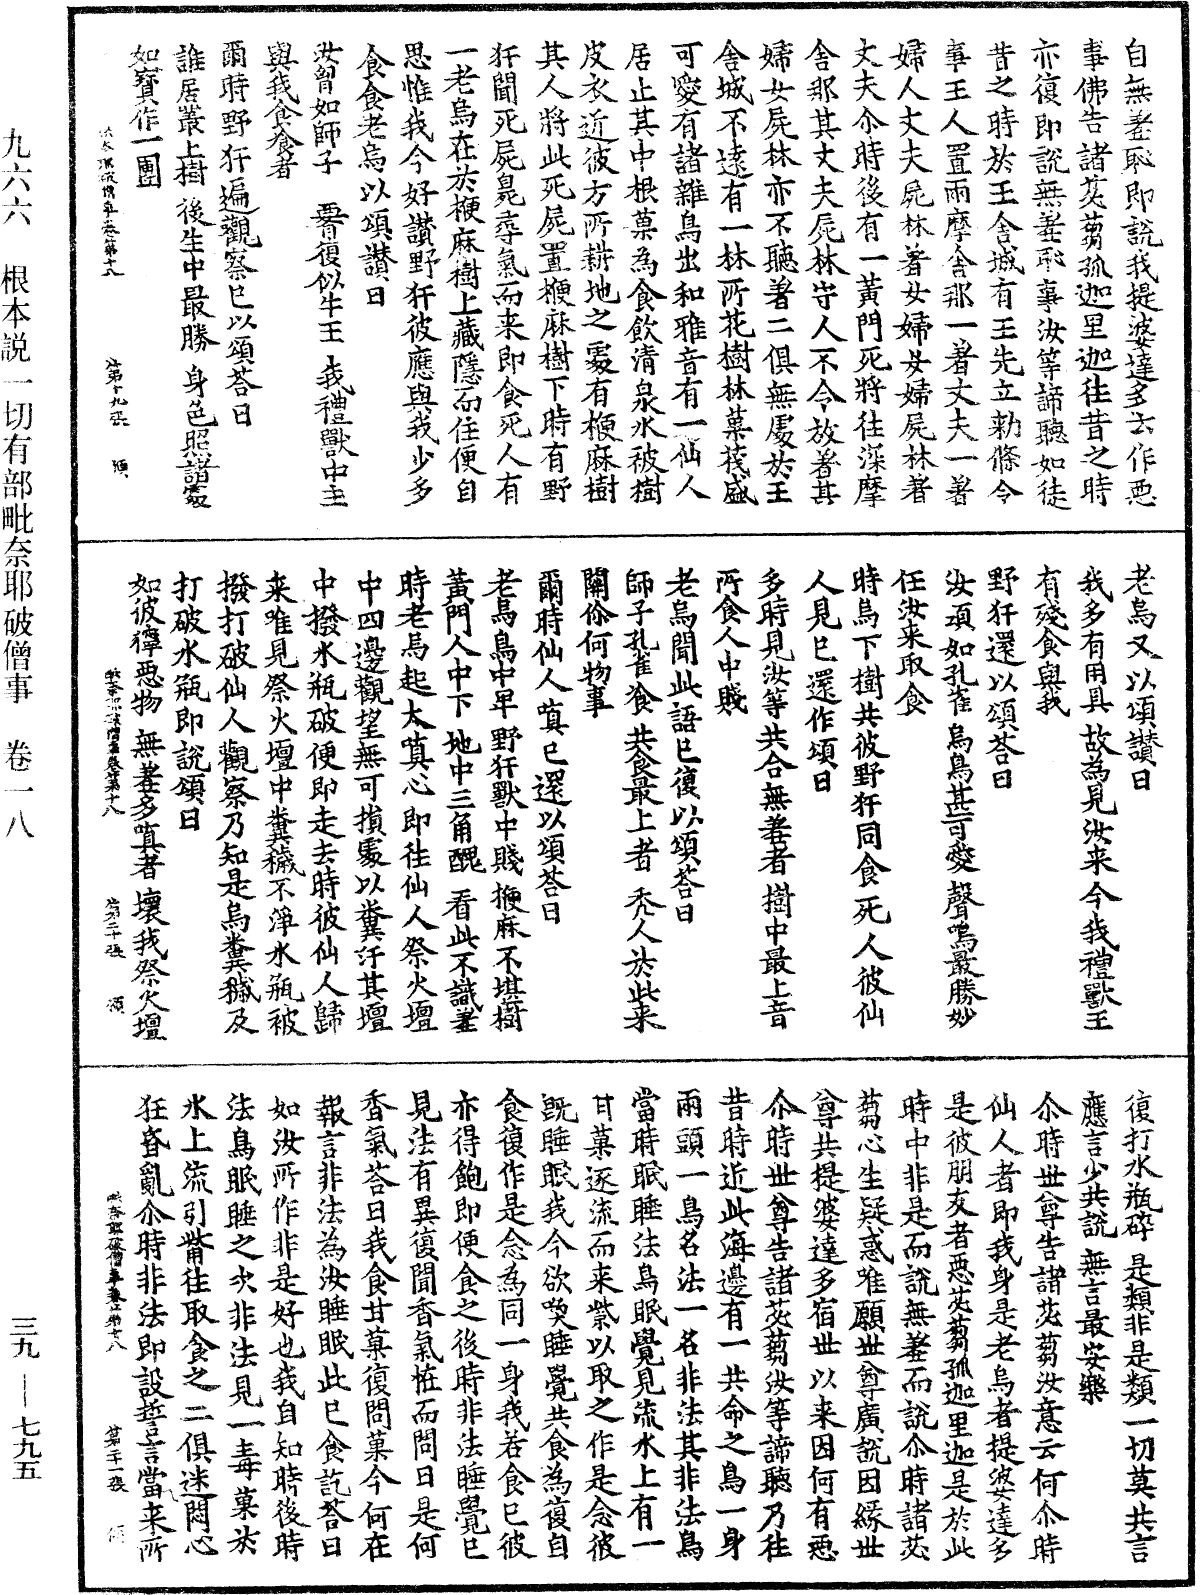 自無羞恥即説我提婆達多云作悪
事佛告諸苾蒭孤迦里迦往昔之時
亦復即説無羞恥事汝等諦聽如徒
昔之時於王舍城有王先立勅條令
事王人置兩摩舍那一著丈夫一著
婦人丈夫屍林著女婦女婦屍林著
丈夫尒時後有一黃門死將往深摩
舍那其丈夫屍林守人不令放著其
婦女屍林亦不聽著二俱無處於王
舍城不遠有一林所花樹林菓茂盛
可愛有諸雜鳥出和雅音有一仙人
居止其中根菓為食飲清泉水被樹
皮衣近彼方所耕地之處有楩麻樹
其人將此死屍置楩麻樹下時有野
犴聞死屍臰尋氣而来即食死人有
一老烏在於楩麻樹上藏隱而住便自
思惟我今好讃野犴彼應與我少多
食食老烏以頌讃曰
汝𦚾如師子　䎹復似牛王　我禮獸中主
與我食飡者
爾時野犴遍觀察已以頌荅曰
誰居叢上樹　後生中最勝　身色照諸處
如寶作一團
老烏又以頌讃曰
我多有用具　故為見汝来　今我禮獸王
有殘食與我
野犴還以頌荅曰
汝項如孔雀　烏鳥甚可愛　聲鳴最勝妙
任汝来取食
時烏下樹共彼野犴同食死人彼仙
人見已還作頌曰
多時見汝等　共合無羞者　樹中最上音
所食人中賤
老烏聞此語已復以頌荅曰
師子孔雀飡　共食最上者　禿人於此来
關你何物事
爾時仙人嗔已還以頌荅曰
老烏鳥中卑　野犴獸中賤　楩麻不堪樹
黃門人中下　地中三角醜　看此不識羞
時老烏起大嗔心即往仙人祭火壇
中四邊觀望無可損處以糞汙其壇
中撥水瓶破便即走去時彼仙人歸
来唯見祭火壇中糞穢不淨水瓶被
撥打破仙人觀察乃知是烏糞穢及
打破水瓶即説頌曰
如彼獐悪物　無羞多嗔者　壞我祭火壇
復打水瓶碎　是類非是類　一切莫共言
應言少共説　無言最安樂
尒時世尊告諸苾蒭汝意云何尒時
仙人者即我身是老烏者提婆達多
是彼朋友者悪苾蒭孤迦里迦是於此
時中非是而説無羞而説尒時諸苾
蒭心生疑惑唯願世尊廣説因緣世
尊共提婆達多宿世以来因何有悪
尒時世尊告諸苾蒭汝等諦聽乃往
昔時近此海邊有一共命之鳥一身
兩頭一鳥名法一名非法其非法鳥
當時眠睡法鳥眠覺見流水上有一
甘菓逐流而来紫以取之作是念彼
既睡眠我今欲喚睡覺共食為復自
食復作是念為同一身我若食已彼
亦得飽即便食之後時非法睡覺已
見法有異復聞香氣恠而問曰是何
香氣荅曰我食甘菓復問菓今何在
報言非法為汝睡眠此已食訖荅曰
如汝所作非是好也我自知時後時
法鳥眠睡之次非法見一毒菓於
水上流引觜往取食之二俱迷悶心
狂昏亂尒時非法即設誓言當来所
九六六　根本説一切有部毗奈耶破僧事　卷一八
三九—七九五